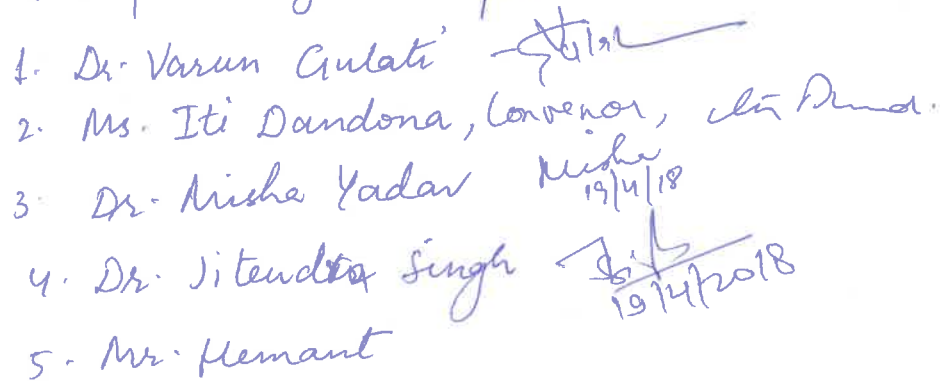 1. Dr. Varun Gulati
2. Ms. Iti Dandona, Convenor,
3. Dr. Nisha Yadav Nisha
19/4/18
4. Dr. Jitendra Singh
19/4/2018
5. Mr. Hemant